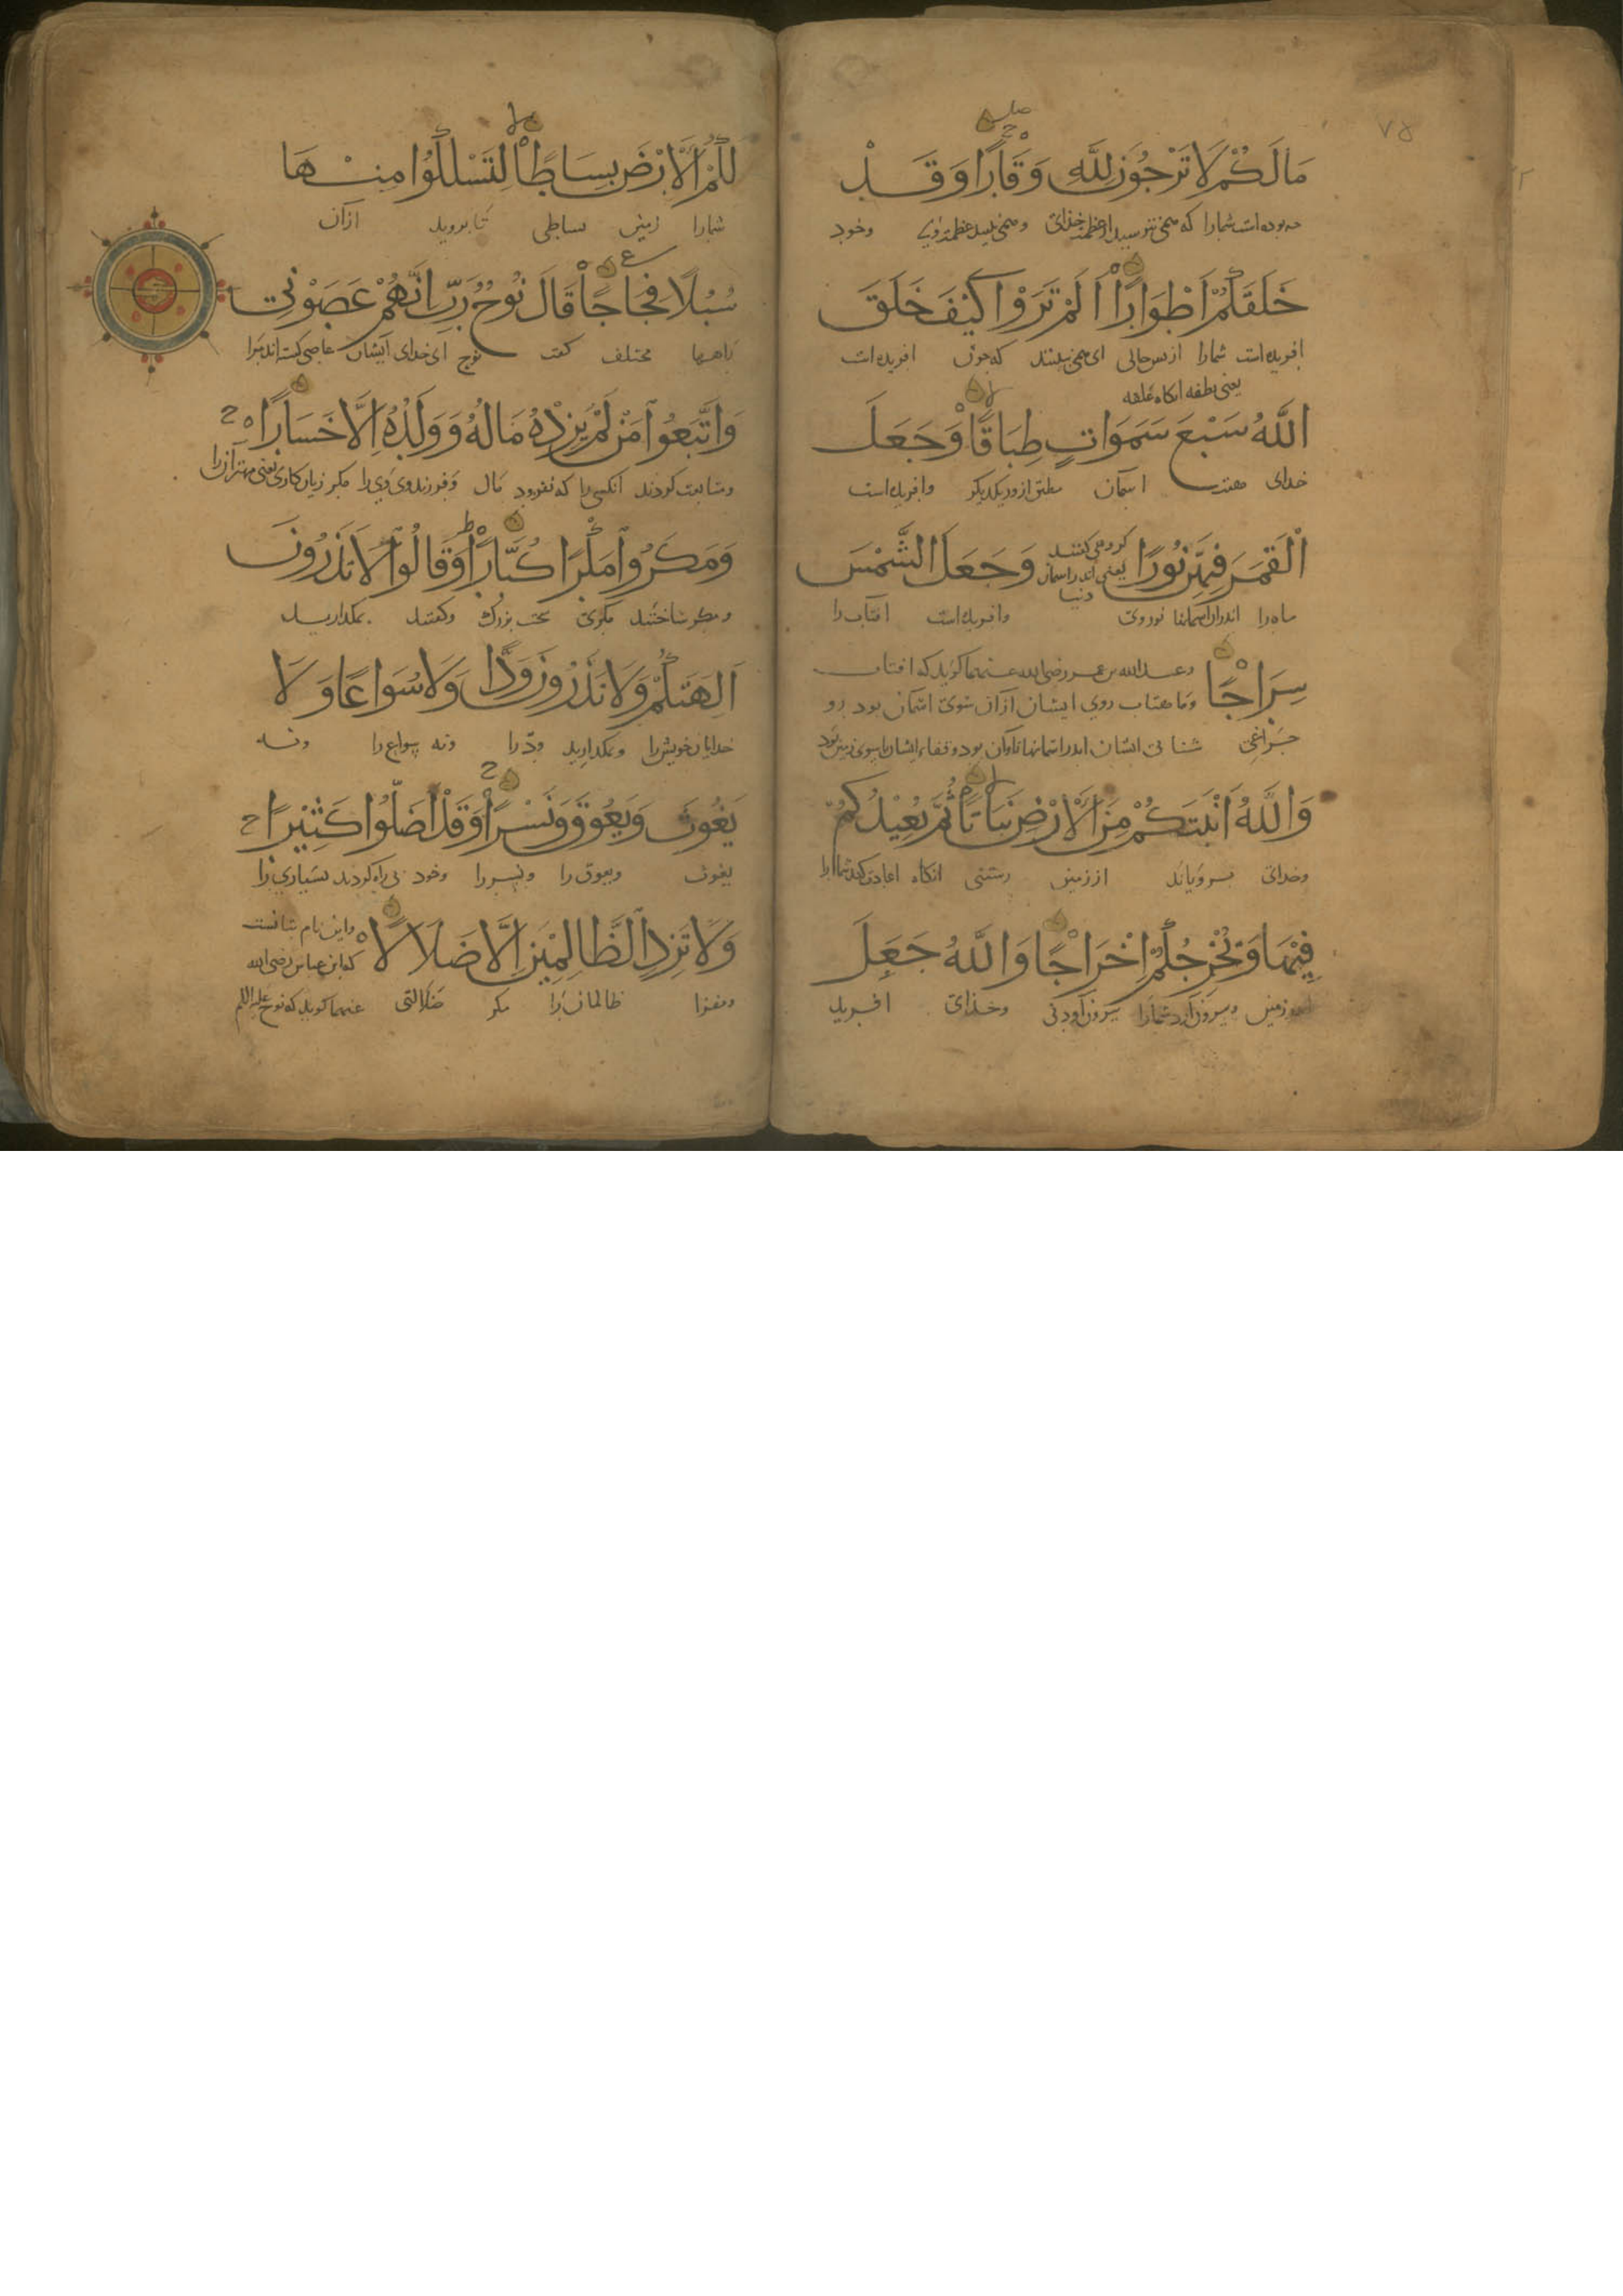 مَا لَكُمْ لَا تَرْجُونَ لِلَّهِ وَقَارًا وَقَدْ
بوده است شمارا که همی نترسید از عظمت خدای و همی عظمت وخود
خَلَقَكُمْ اَطْوَارًا اَلَمْ تَرَوْا كَيْفَ خَلَقَ
افریده است شمارا از پس حالی ای همی نبینند که چون افریده است
یعنی نطفه انکاه علقه
اللَّهُ سَبْعَ سَمَوَاتٍ طِبَاقًا وَجَعَلَ
خدای هفت اسمان مطبق از ور یکدیکر وافریده است
الْقَمَرَ فِيهِنَّ نُورًا وَجَعَلَ الشَّمْسَ
یعنی اندر اسمان دنیا
ماه را اندران اسمانها نوری وافریده است افتاب را
سِرَاجًا
وعبدالله بن عمر رضی الله عنهما کوید که افتاب
وماهتاب روی ایشان ازان سوی اسمان بود و رو
چراغی شنائی ایشان اندر اسمانها تاوان بود وقفاء ایشان باسوی زمین بود
وَاللَّهُ اَنْبَتَكُمْ مِنَ الْاَرْضِ نَبَاتًا ثُمَّ يُعِيْدُكُمْ
وخدای برویاند از زمین رستنی انکاه اعادت کند شمارا
فِيْهَا وَيُخْرِجُكُمْ اِخْرَاجًا وَاللَّهُ جَعَلَ
زمین وبیرون ارد شمارا بیرون اوردنی وخدای افرید
لَكُمُ الْاَرْضَ بِسَاطًا لِتَسْلُكُوا مِنْهَا
شمارا زمین بساطی تا بروید ازان
سُبُلًا فِجَاجًا قَالَ نُوحٌ رَبِّ اِنَّهُمْ عَصَوْنِي
راهها مختلف کفت نوح ای خدای ایشان عاصی کشته اند مرا
وَاتَّبَعُوا مَنْ لَمْ يَزِدْهُ مَالُهُ وَوَلَدُهُ اِلَّا خَسَارًا
ومتابعت کردند انکسی را که نفزود مال وفرزند وی وی را مکر زیان کاری یعنی مهتران را
وَمَكَرُوا مَكْرًا كُبَّارًا وَقَالُوا لَا تَذَرُونَ
ومکر ساختند مکری سخت بزرک وکفتند بمکذارید
اٰلِهَتَكُمْ وَلَا تَذَرُونَ وَدًّا وَلَا سُوَاعًا وَلَا
خدایان خویش را وبمکذارید ودّ را ونه سواع را ونه
يَغُوثَ وَيَعُوقَ وَنَسْرًا وَقَدْ اَضَلُّوا كَثِيْرًا
یغوث ویعوق را ونسر را وخود بی راه کردند بسیاری را
وَلَا تَزِدِ الظَّالِمِيْنَ اِلَّا ضَلَالًا
واین نام بتانست
که ابن عباس رضی الله
ومفزا ظالمان را مکر ضلالتی عنهما کوید که نوح علیه السلم